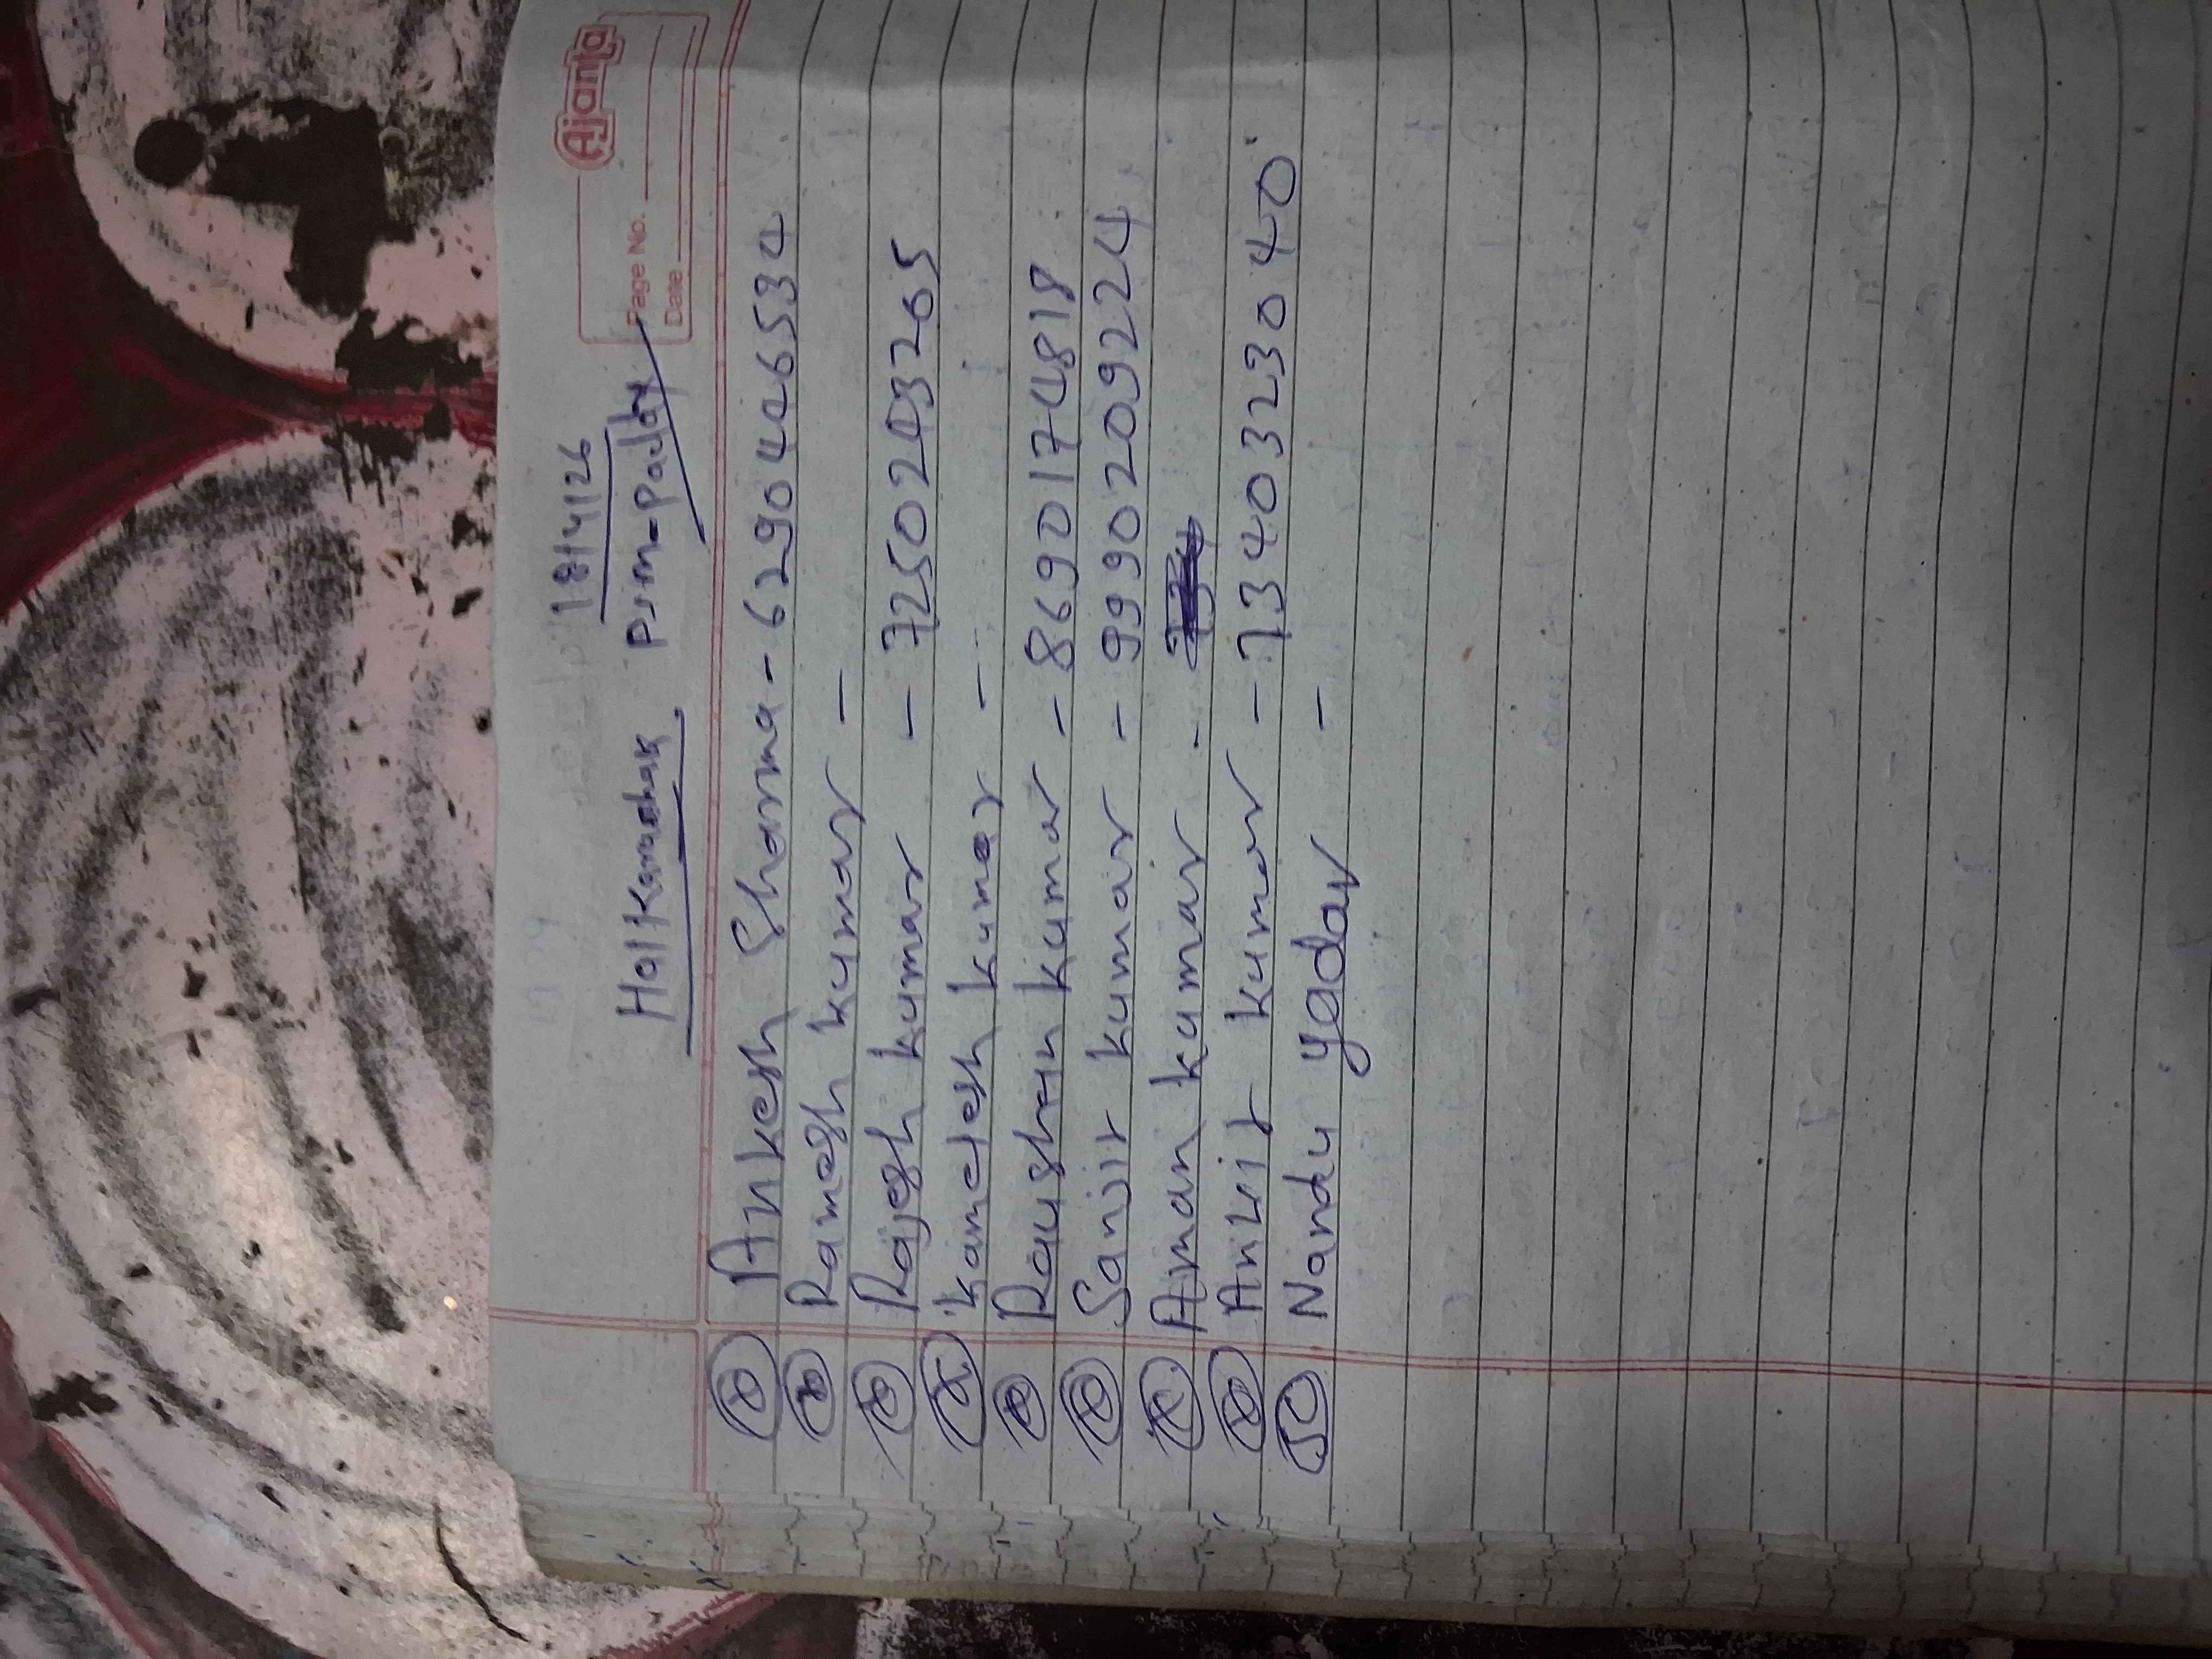 Ajanta
Page No.
Date
18/4/26
Halt Karachak Prim-Paday
Ankesh Sharma - 6290446534
Ramesh kumar -
Rajesh kumar - 7250243265
kamelesh kumar -
Raushan kumar - 8690174818
Sanjit kumar - 9990209224
Aman kumar -
Ankit kumar - 7340323040
Nandu yadav -